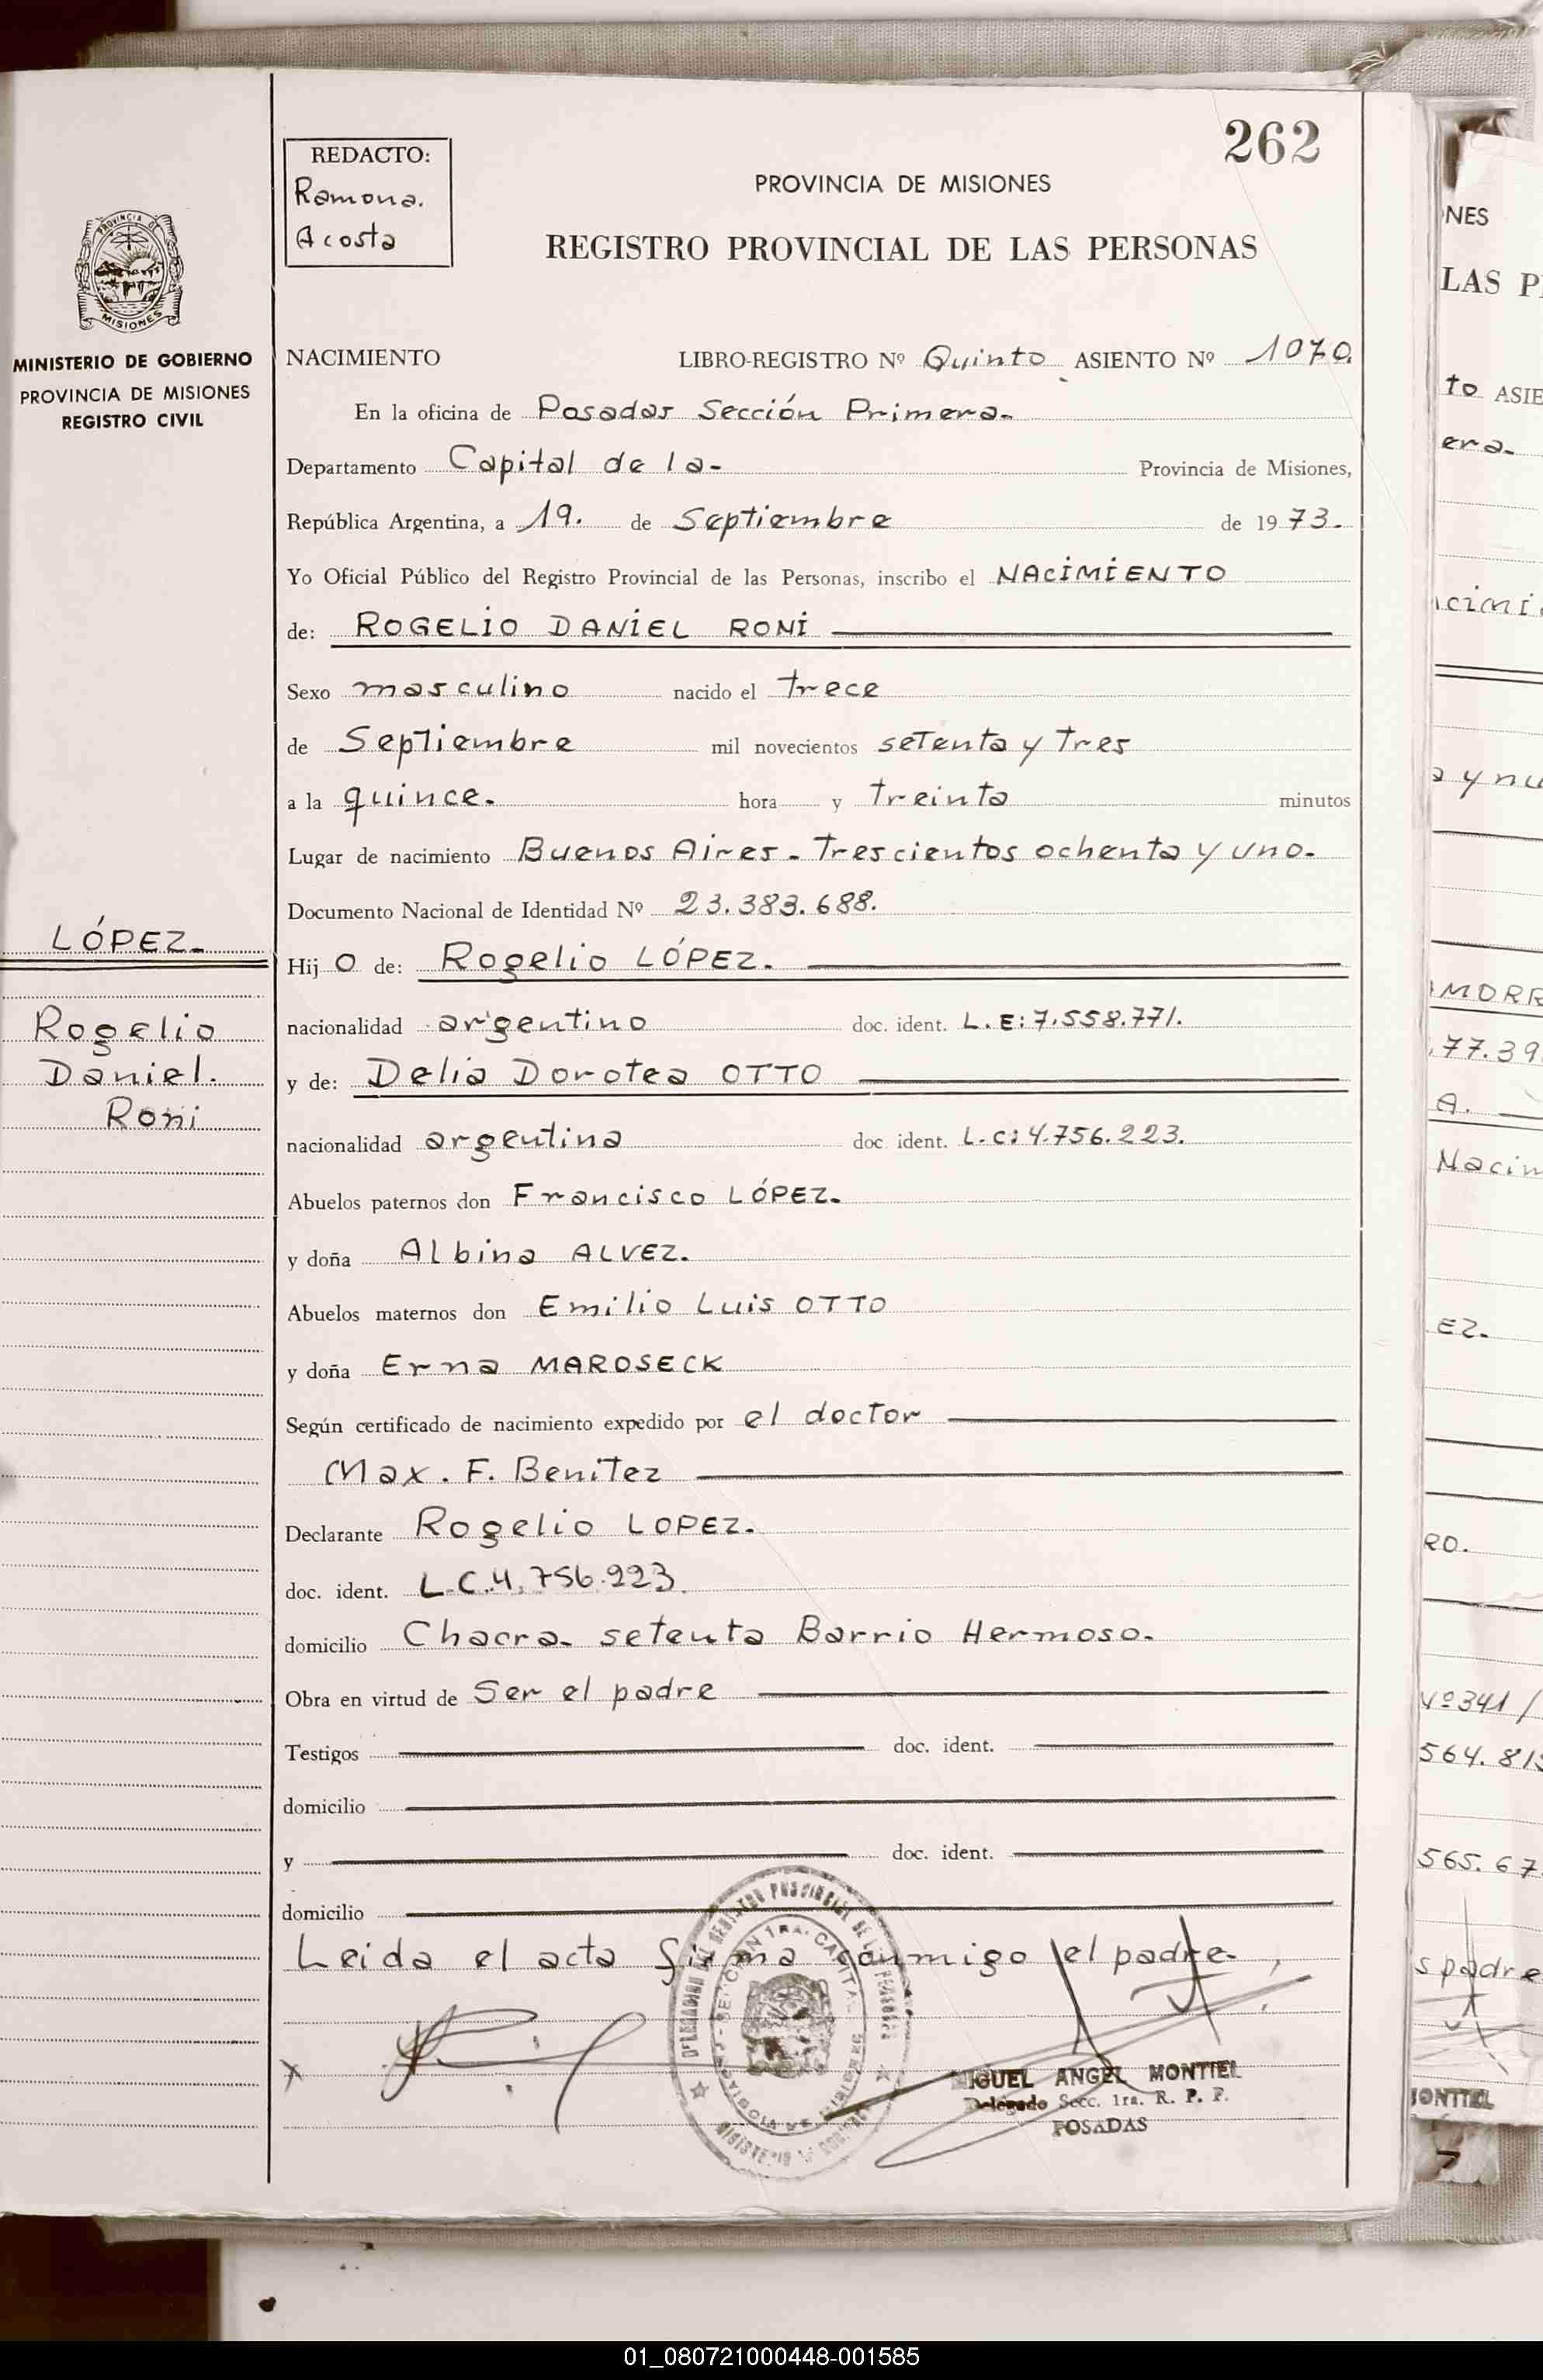 262
REDACTO:
Ramona.
Acosta
PROVINCIA DE MISIONES
REGISTRO PROVINCIAL DE LAS PERSONAS
PROVINCIA DE
MISIONES
MINISTERIO DE GOBIERNO
PROVINCIA DE MISIONES
REGISTRO CIVIL
NACIMIENTO LIBRO-REGISTRO Nº Quinto ASIENTO Nº 1070.
En la oficina de Posadas Sección Primera-
Departamento Capital de la- Provincia de Misiones,
República Argentina, a 19. de Septiembre de 1973.-
Yo Oficial Público del Registro Provincial de las Personas, inscribo el NACIMIENTO
de: ROGELIO DANIEL RONI
Sexo masculino nacido el trece
de Septiembre mil novecientos setenta y tres
a la quince. hora y treinta minutos
Lugar de nacimiento Buenos Aires - Trescientos ochenta y uno.
Documento Nacional de Identidad Nº 23.383.688.
LÓPEZ-
Rogelio
Daniel.
Roni
Hijo de: Rogelio LÓPEZ.
nacionalidad argentino doc. ident. L.E: 7.558.771.
y de: Delia Dorotea OTTO
nacionalidad argentina doc. ident. L.C: 4.756.223.
Abuelos paternos don Francisco LÓPEZ.
y doña Albina ALVEZ.
Abuelos maternos don Emilio Luis OTTO
y doña Erna MAROSECK
Según certificado de nacimiento expedido por el doctor
Max. F. Benitez
Declarante Rogelio LOPEZ.
doc. ident. L.C.4.756.223.
domicilio Chacra- setenta Barrio Hermoso.
Obra en virtud de Ser el padre
Testigos doc. ident.
domicilio
y doc. ident.
domicilio
Leida el acta firma conmigo el padre-
MIGUEL ANGEL MONTIEL
Delegado Secc. 1ra. R. P. P.
POSADAS
NES
LAS P
to ASIE
era-
a y nu
77.39
A.
Nacim
EZ.
RO.
Nº 341 /
564.81
565.67
s padre
MONTIEL
01_080721000448-001585